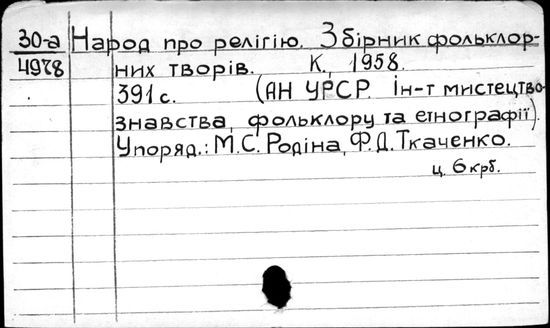 30-а Народ про релігію. Збірник фольклор-
4978 них творів. К., 1958.
391 с. (АН УРСР. Ін-т мистецтво
знавства, фольклору та етнографії).
Упоряд.: М.С. Родіна, Ф.Д. Ткаченко.
ц. 6 крб.